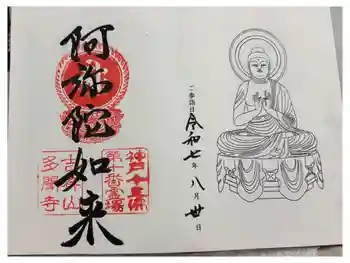 ご参詣日
令和七年八月廿日
神戸十三佛
第十番霊場
阿弥陀如来
吉祥山
多聞寺